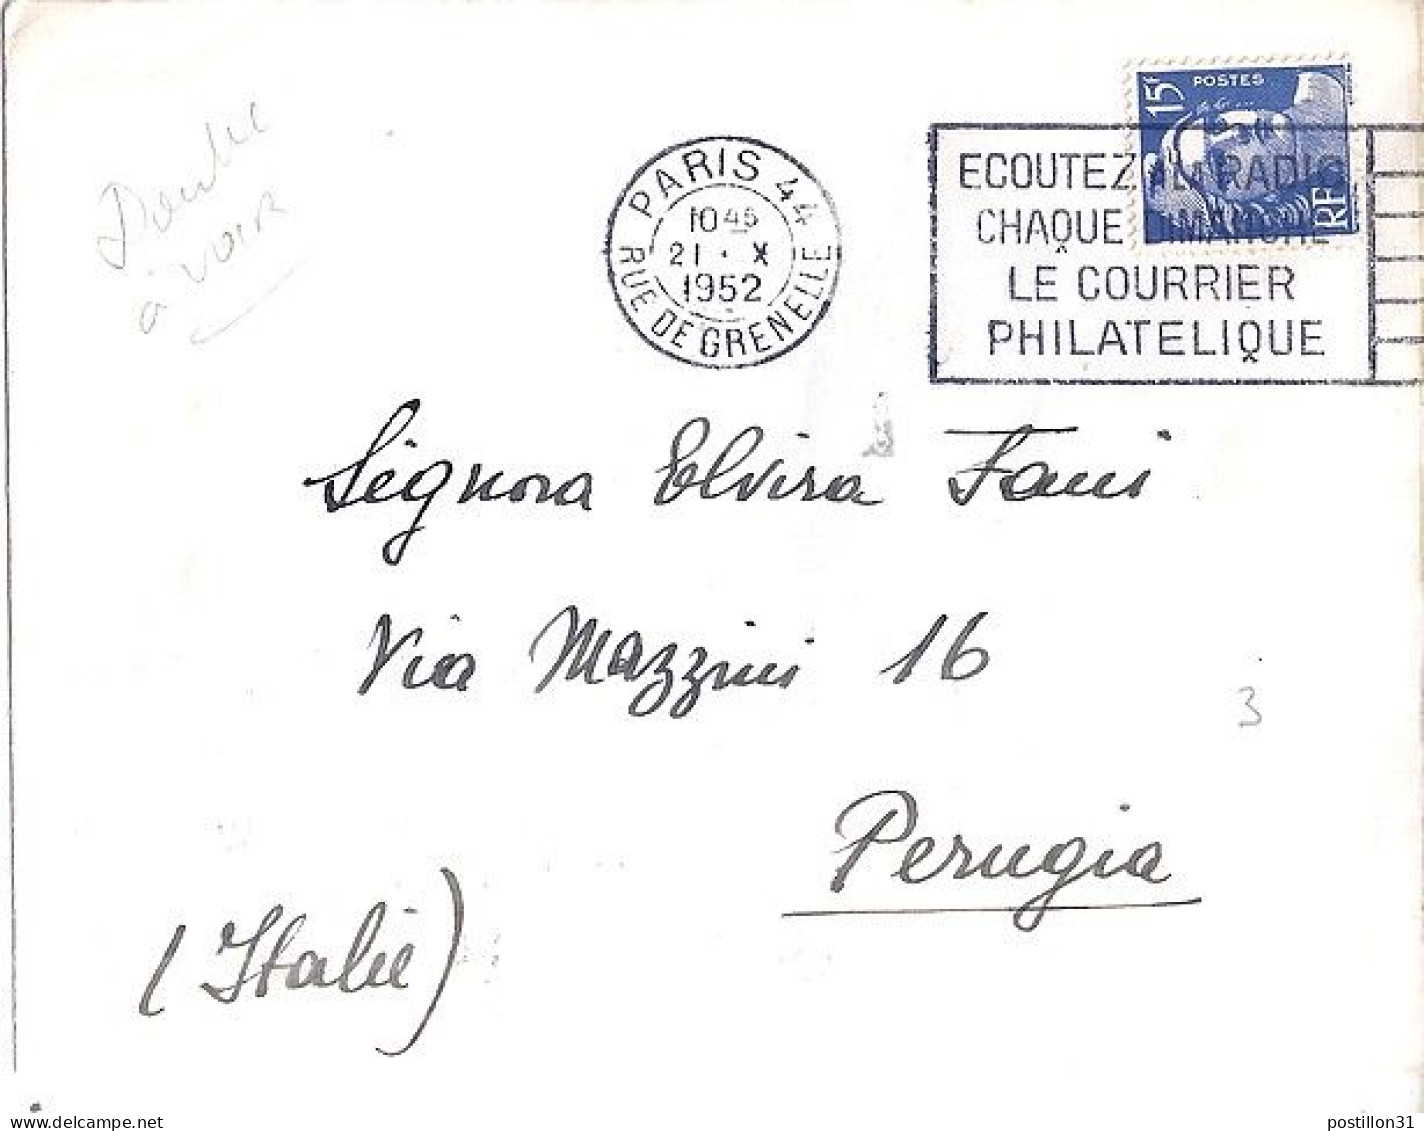 Double
à voir
15f POSTES
RF
PARIS 44
10 45
21 · X
1952
RUE DE GRENELLE
ECOUTEZ LA RADIO
CHAQUE DIMANCHE
LE COURRIER
PHILATELIQUE
Signora Elvira Fani
Via Mazzini 16
3
Perugia
(Italie)
delcampe.net
postillon31